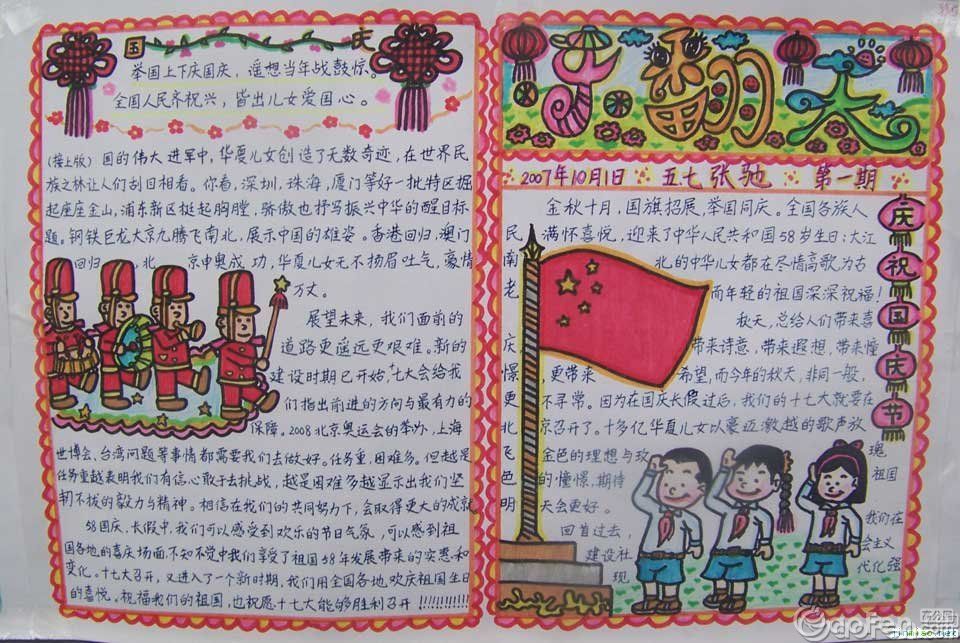 乐翻天
2007年10月1日 五.七 张驰 第一期
庆祝国庆节
金秋十月,国旗招展,举国同庆。全国各族人
民满怀喜悦,迎来了中华人民共和国58岁生日:大江
南北的中华儿女都在尽情高歌,为古
老而年轻的祖国深深祝福!
秋天,总给人们带来喜
庆带来诗意,带来遐想,带来憧
憬,更带来希望,而今年的秋天,非同一般,
更不寻常。因为在国庆长假过后,我们的十七大就要在
北京召开了。十多亿华夏儿女以豪迈激越的歌声放
飞金色的理想与玫瑰
色的憧憬,期待祖国
明天会更好。
回首过去,我们在
建设社会主义
现代化强
国庆
举国上下庆国庆,遥想当年战鼓惊。
全国人民齐祝兴,皆出儿女爱国心。
(接上版)国的伟大进军中,华夏儿女创造了无数奇迹,在世界民
族之林让人们刮目相看。你看,深圳,珠海,厦门等好一批特区掘
起座座金山,浦东新区挺起胸膛,骄傲也抒写振兴中华的醒目标
题。钢铁巨龙大京九腾飞南北,展示中国的雄姿。香港回归,澳门
回归,北京申奥成功,华夏儿女无不扬眉吐气,豪情
万丈。
展望未来,我们面前的
道路更遥远更艰难。新的
建设时期已开始,十七大会给我
们指出前进的方向与最有力的
保障。2008北京奥运会的举办,上海
世博会、台湾问题等事情都需要我们去做好。任务重,困难多。但越是
任务重越表明我们有信心敢于去挑战,越是困难多越显示出我们坚
韧不拔的毅力与精神。相信在我们的共同努力下,会取得更大的成就
58国庆,长假中,我们可以感受到欢乐的节日气氛,可以感到祖
国各地的喜庆场面,不知不觉中我们享受了祖国58年发展带来的实惠和
变化。十七大召开,又进入了一个新时期,我们用全国各地欢庆祖国生日
的喜悦。祝福我们的祖国,也祝愿十七大能够胜利召开!!!!!!!!!!!